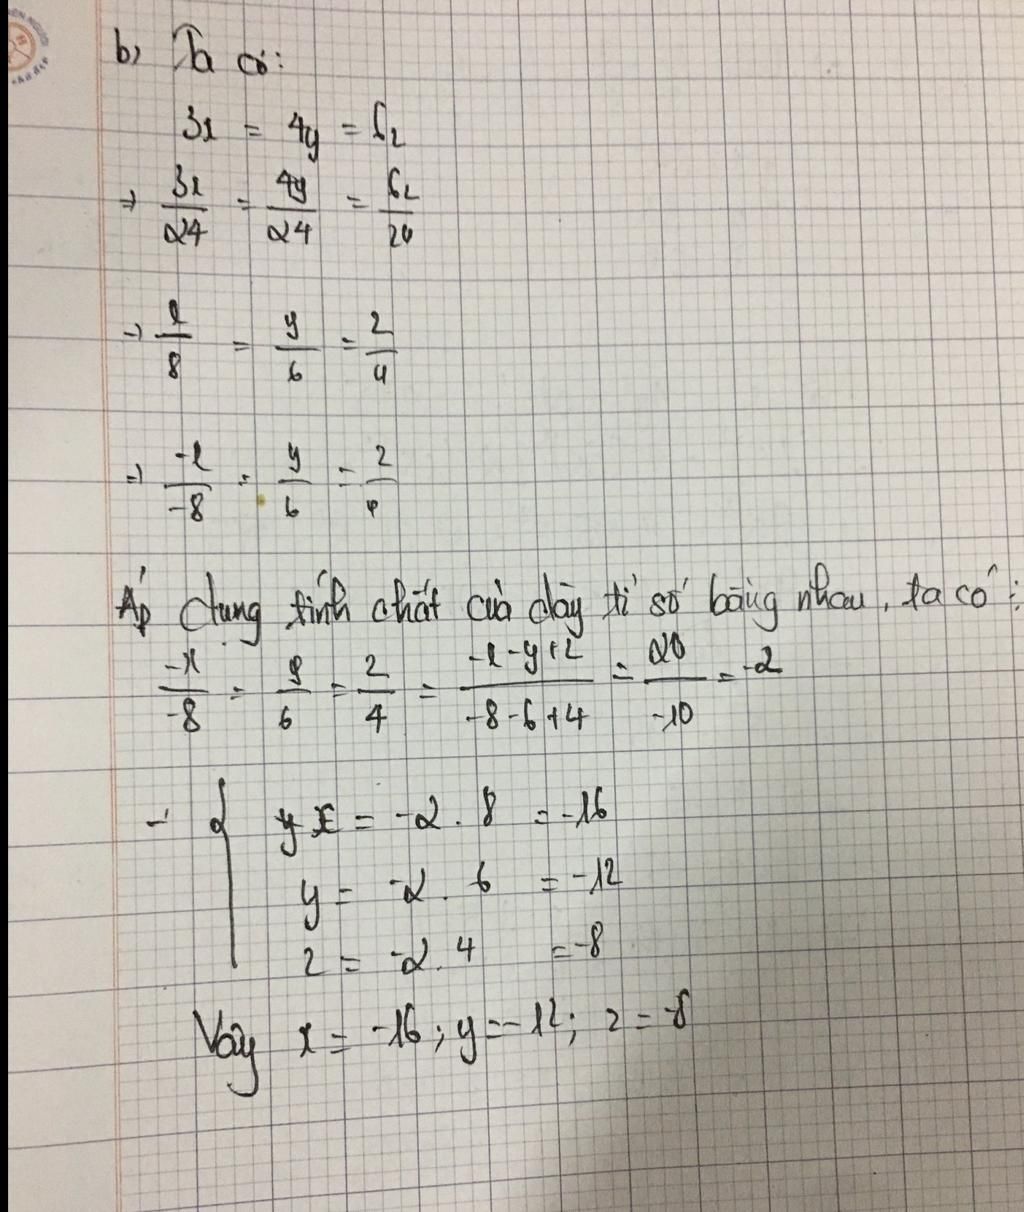 b) Ta có:
3x = 4y = 6z
⇒ 3x/24 = 4y/24 = 6z/24
⇒ x/8 = y/6 = z/4
⇒ -x/-8 = y/6 = z/4
Áp dụng tính chất của dãy tỉ số bằng nhau, ta có:
-x/-8 = y/6 = z/4 = -x-y+z/-8-6+4 = 20/-10 = -2
- { x = -2 . 8 = -16
y = -2 . 6 = -12
z = -2 . 4 = -8
Vậy x = -16; y = -12; z = -8